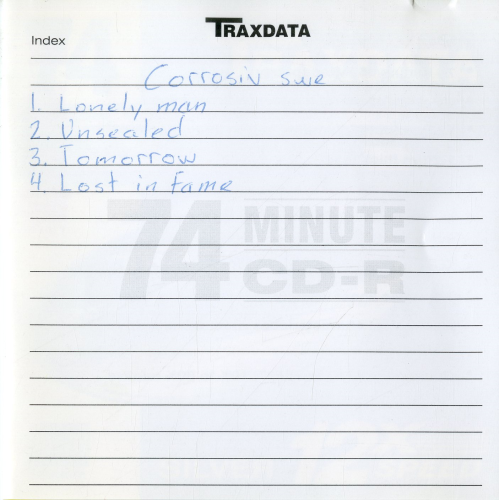 TRAXDATA
Index
Corrosiv swe
1. Lonely man
2. Unsealed
3. Tomorrow
4. Lost in Fame
74 MINUTE
CD-R